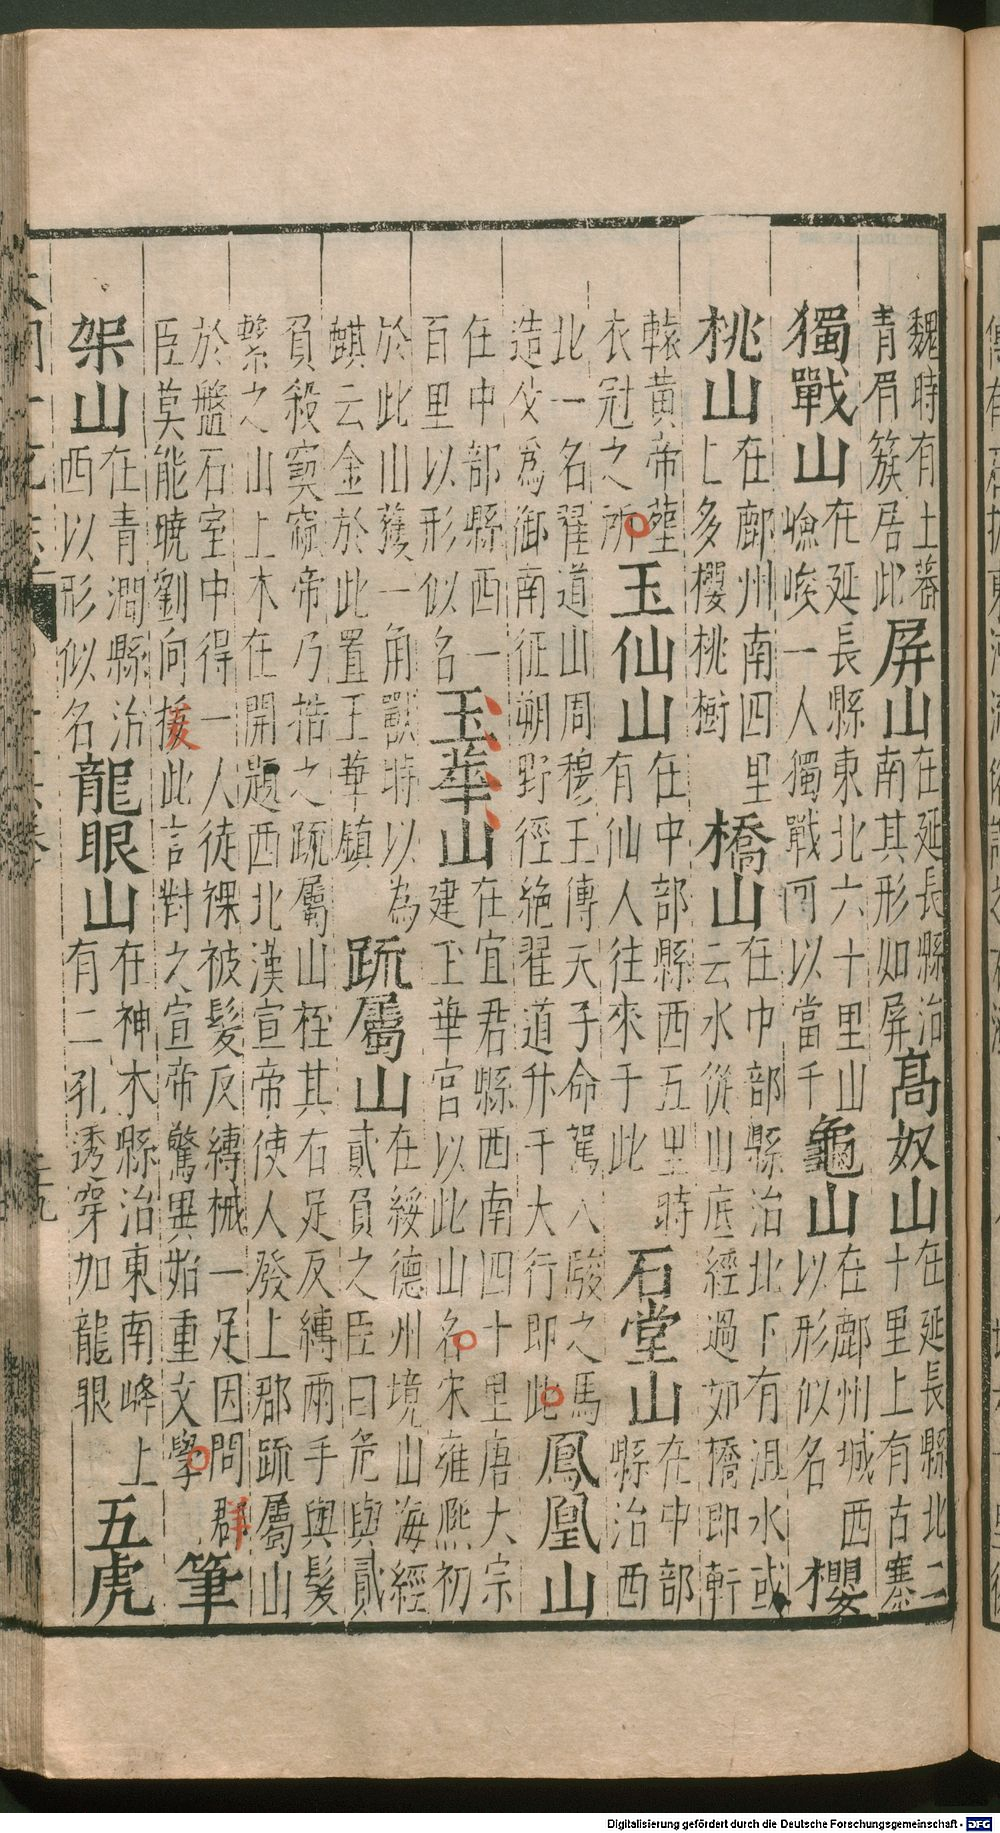 魏時有土蕃
青眉簇居此
屏山
在延長縣治
南其形如屏
高奴山
在延長縣北二
十里上有古寨
獨戰山
在延長縣東北六十里山
嶮峻一人獨戰可以當千
龜山
在鄜州城西
以形似名
櫻
桃山
在鄜州南四里
上多櫻桃樹
橋山
在中部縣治北下有沮水或
云水從山底經過如橋即軒
轅黃帝葬
衣冠之所
玉仙山
在中部縣西五里時
有仙人往來于此
石堂山
在中部
縣治西
北一名翟道山周穆王傳天子命駕八駿之馬
造父為御南征朔野徑絶翟道升于大行即此
鳳凰山
在中部縣西一
百里以形似名
玉華山
在宜君縣西南四十里唐大宗
建玉華宮以此山名宋雍熈初
於此山獲一角獸時以為
麒云金於此置玉華鎮
疏屬山
在綏德州境山海經
貳負之臣曰危與貳
負殺窫窳帝乃梏之疏屬山桎其右足反縛兩手與髮
繫之山上木在開題西北漢宣帝使人發上郡疏屬山
於盤石室中得一人徒裸被髮反縛械一足因問群
臣莫能曉劉向援此言對之宣帝驚異始重文學
筆
架山
在青澗縣治
西以形似名
龍眼山
在神木縣治東南峰上
有二孔透穿如龍眼
五虎
Digitalisierung gefördert durch die Deutsche Forschungsgemeinschaft - DFG